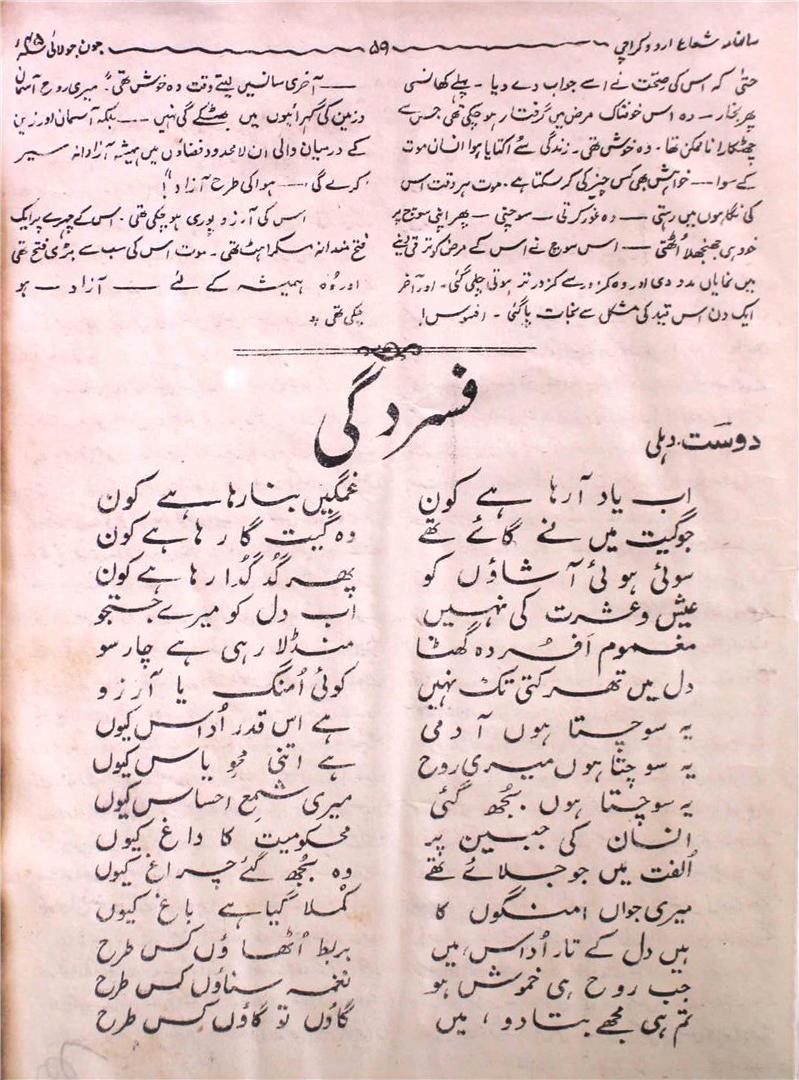 سالنامہ شعاع اردو کراچی ۵۹ جون جولائی ۴۵ سنہ
حتیٰ کہ اس کی صحت نے اسے جواب دے دیا ۔ پہلے کھانسی
پھر بخار — وہ اس خوفناک مرض میں گرفتار ہو چکی تھی جس سے
چھٹکارا ناممکن تھا ۔ وہ خوش تھی ۔ زندگی سے اکتایا ہوا انسان موت
کے سوا — خواہش بھی کس چیز کی کر سکتا ہے ۔ موت ہر وقت اس
کی نگاہوں میں رہتی — وہ غور کرتی — سوچتی — پھر اپنی سوچ پر
خود ہی جھنجھلا اٹھتی — اس سوچ نے اس کے مرض کو ترقی دینے
میں نمایاں مدد دی اور وہ کمزور سے کمزور تر ہوتی چلی گئی ۔ اور آخر
ایک دن اس قید کی مشکل سے نجات پا گئی ۔ افسوس !
— آخری سانس لیتے وقت وہ خوش تھی "میری روح آسمان
و زمین کی گہرائیوں میں بھٹکے گی نہیں — بلکہ آسمان اور زمین
کے درمیان والی ان لامحدود فضاؤں میں ہمیشہ آزادانہ سیر
کرے گی — ہوا کی طرح آزاد"!
اس کی آرزو پوری ہو چکی تھی ۔ اس کے چہرے پر ایک
فتح مندانہ مسکراہٹ تھی ۔ موت اس کی سب سے بڑی فتح تھی
اور وہ ہمیشہ کے لئے — آزاد — ہو
چکی تھی *
فسردگی
دوست ۔ دہلی
اب یاد آ رہا ہے کون غمگیں بنا رہا ہے کون
جو گیت میں نے گائے تھے وہ گیت گا رہا ہے کون
سوئی ہوئی آشاؤں کو پھر گُدگُدا رہا ہے کون
عیش و عشرت کی نہیں اب دل کو میرے جستجو
مغموم اَفسُردہ گھٹا منڈلا رہی ہے چار سو
دل میں تھرکتی تک نہیں کوئی اُمنگ یا آرزو
یہ سوچتا ہوں آدمی ہے اس قدر اُداس کیوں
یہ سوچتا ہوں میری روح ہے اتنی محوِ یاس کیوں
یہ سوچتا ہوں بُجھ گئی میری شمعِ احساس کیوں
انسان کی جبین پر محکومیت کا داغ کیوں
اُلفت میں جو جلائے تھے وہ بُجھ گئے چراغ کیوں
میری جواں امنگوں کا کُملا گیا ہے باغ کیوں
ہیں دل کے تار اُداس، میں بربط اُٹھاؤں کس طرح
جب روح ہی خموش ہو نغمہ سناؤں کس طرح
تم ہی مجھے بتا دو، میں گاؤں تو گاؤں کس طرح